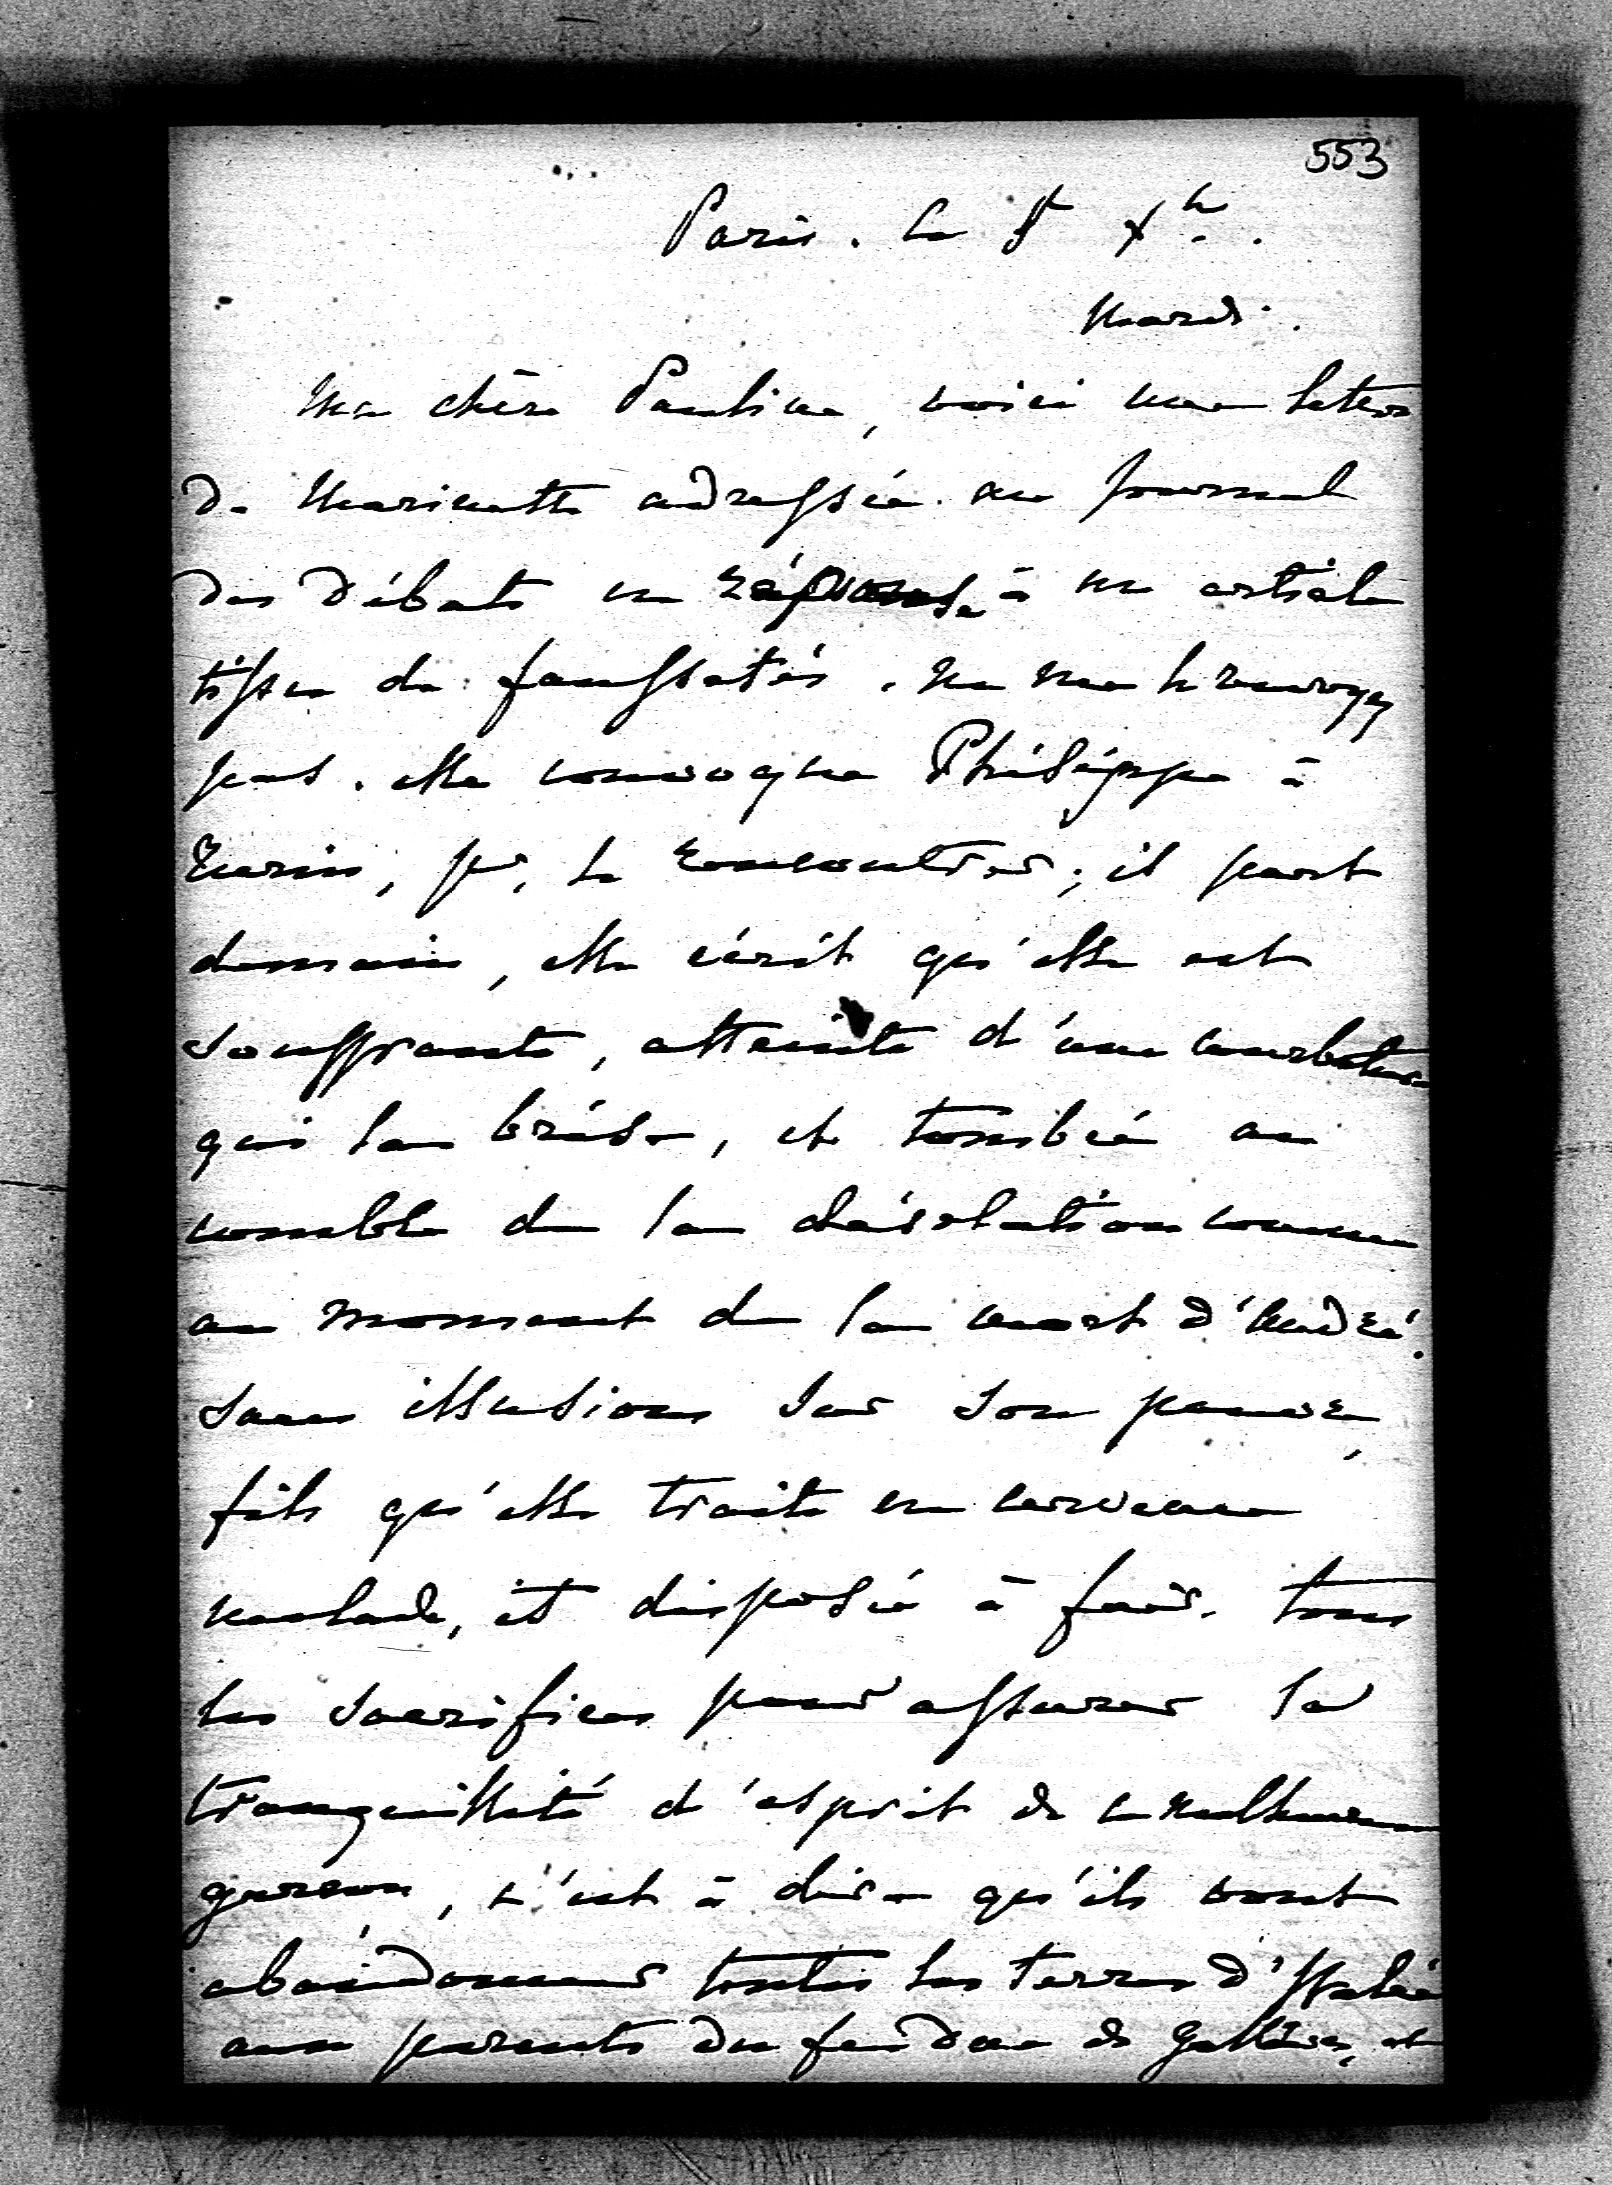 553
Paris. le 5 Xbre.
Mardi.
Ma chère Pauline, voici une lettre
de Marinette adressée au Journal
des Débats en réponse à un article
tissu de faussetés. Ne me le renvoyez
pas. elle convoque Philippe à
Turin, pr. le rencontrer; il part
demain, elle écrit qu'elle est
souffrante, atteinte d'une courbature
qui la brise, et tombée au
comble de la désolation comme
au moment de la mort d'Andréa.
sans illusions sur son pauvre
fils qu'elle traite en cerveau
malade, et disposée à faire tous
les sacrifices pour assurer la
tranquillité d'esprit de ce malheureux
garçon, c'est à dire qu'ils vont
abandonner toutes les terres d'Italie
aux parents du feu Duc de Galliera, et